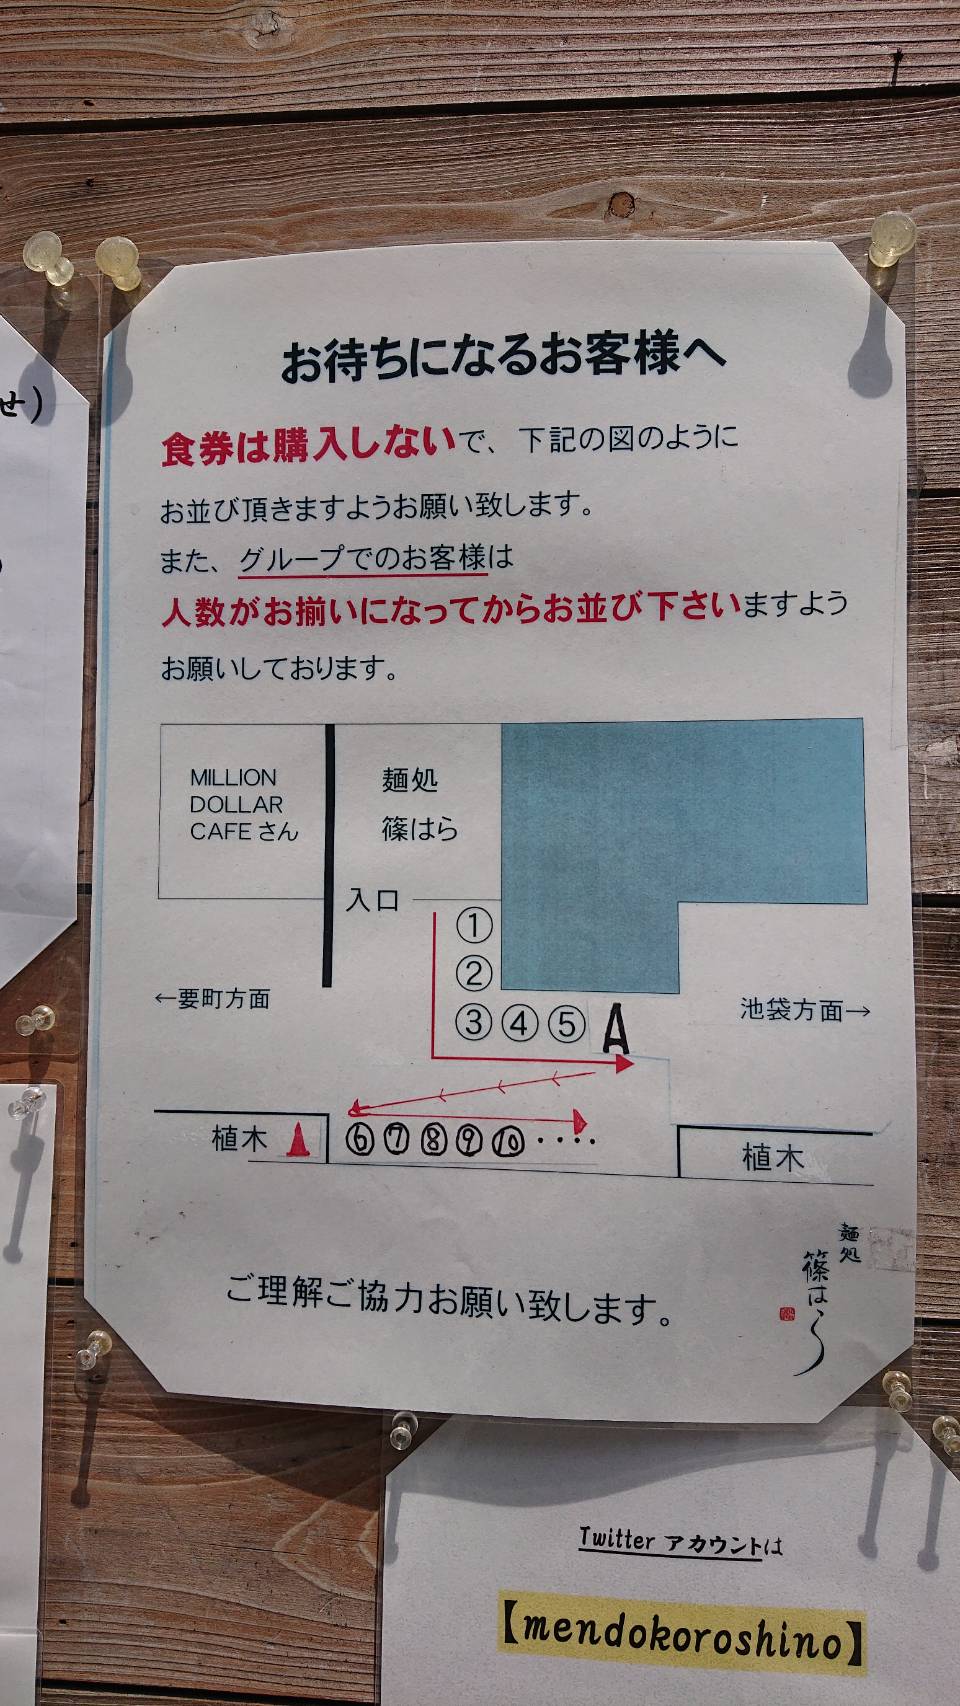 せ)
お待ちになるお客様へ
食券は購入しないで、下記の図のように
お並び頂きますようお願い致します。
また、グループでのお客様は
人数がお揃いになってからお並び下さいますよう
お願いしております。
MILLION
DOLLAR
CAFEさん
麺処
篠はら
入口
①
②
③④⑤A
←要町方面
池袋方面→
植木
⑥⑦⑧⑨⑩・・・・
植木
ご理解ご協力お願い致します。
麺処
篠はら
Twitter アカウントは
【mendokoroshino】